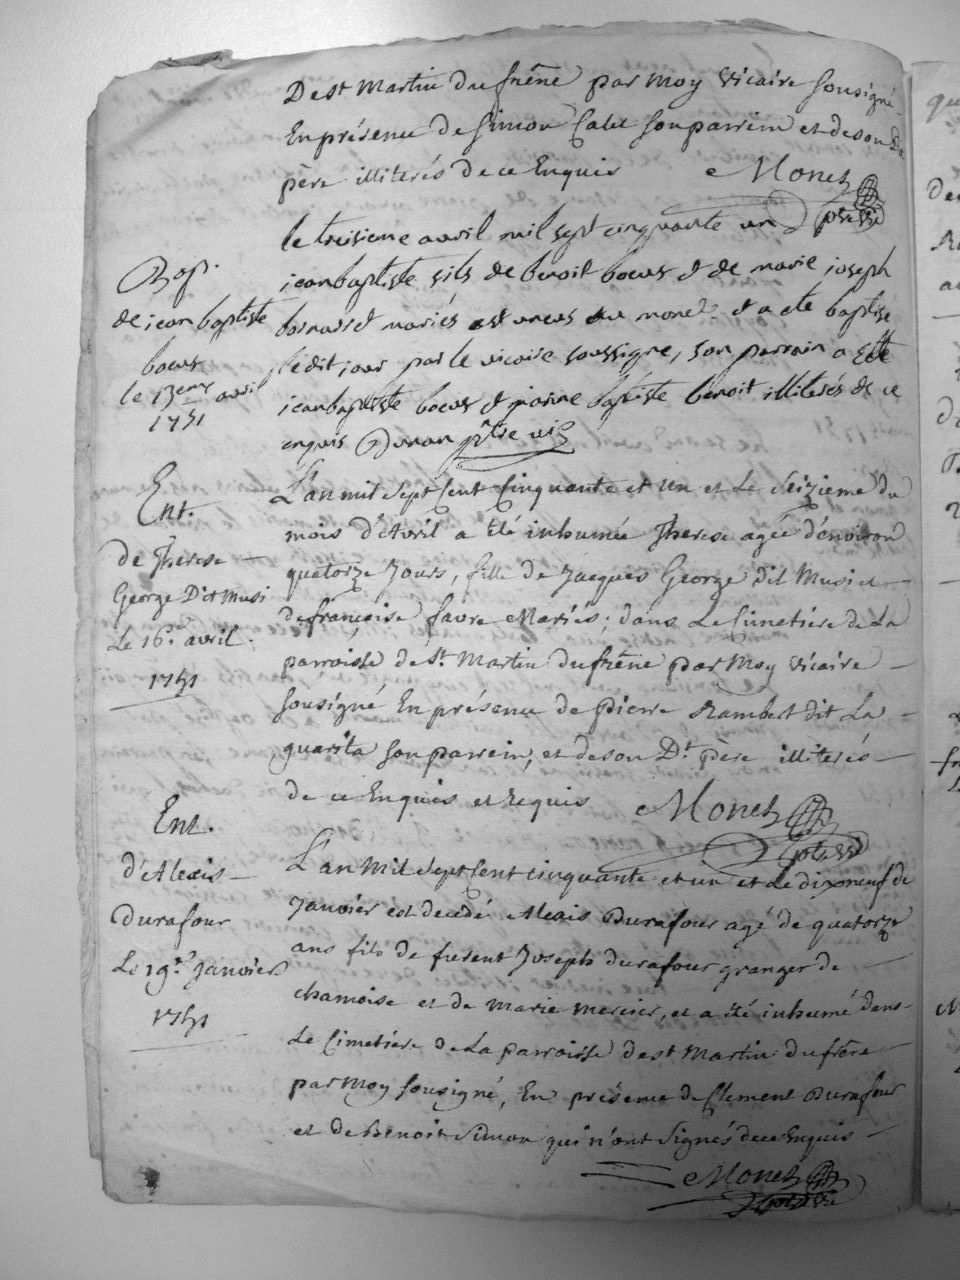 De st Martin du frêne par moy vicaire sousigné
En présence de Simon Calet son parrein et de son Dt
père illiterés de ce Enquis Monet
ptre vic
le treisieme avril mil sept cinquante un
Bap.
de jean baptiste
boeuf
le 13eme avril
1751
jean baptiste fils de benoit boeuf et de marie joseph
mariés est venus au monde et a ete baptisé
ledit jour par le vicaire soussigne, son parrain a Eté
jean baptiste boeuf et marine baptiste benoit illiterés de ce
enquis Dunan ptre vic
Ent.
de Therese
George Dit Musi
Le 16.e avril.
1751
L'an mil sept Cent Cinquante et un et Le Seizieme du
mois d'Avril a êté inhumée Therese agée d'environ
quatorze Jours, fille de Jacques George dit Musi et
de françoise favre Mariés; dans Le Cimetiére de La
parroisse de St. Martin du frêne par Moy vicaire
sousigné En présence de Pierre Rambert dit La
quarita son parrein, et de son Dt. pere illiterés
de ce Enquis et requis Monet
ptre vic
Ent.
d'Alexis
Durafour
Le 19.e Janvier
1751
L'an Mil Sept Cent cinquante et un et Le dixneuf de
Janvier est decedé Alexis Durafour agé de quatorze
ans fils de furent Joseph durafour granger de
chamoise et de Marie mercier, et a été inhumé dans
Le Cimetiére de La parroisse de st Martin du frêne
par Moy sousigné, En présence de Clement Durafour
et de Benoit Simon qui n'ont Signés de ce Enquis
Monet
ptre vic